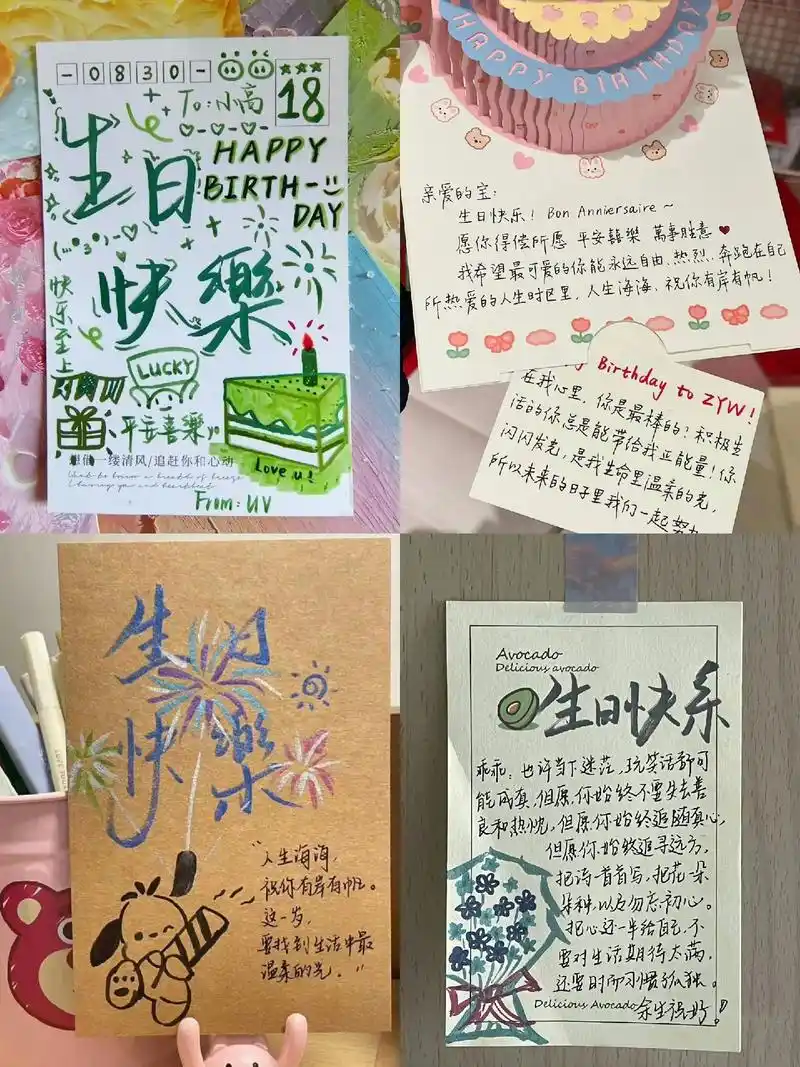 -0830-
To:小高
18
生日
HAPPY
BIRTH-
DAY
快樂
快乐至上
LUCKY
平安喜樂
想做一缕清风/追赶你和心动
Love u!
From: UV
HAPPY BIRTHDAY
亲爱的宝:
生日快乐! Bon Anniersaire ~
愿你得偿所愿 平安喜樂 萬事胜意
我希望最可爱的你能永远自由、热烈、奔跑在自己
所热爱的人生时区里,人生海海,祝你有岸有帆!
Birthday to ZYW!
在我心里,你是最棒的?积极生
活的你总是能带给我正能量!你
闪闪发光,是我生命里温柔的光,
所以未来的日子里我们一起努力
生日
快樂
"人生海海,
祝你有岸有帆。
这一岁,
要找到生活中最
温柔的光。"
Avocado
Delicious avocado
生日快乐
乖乖:也许当下迷茫,玩笑话都可
能成真,但愿你始终不要失去善
良和热忱,但愿你始终追随真心,
但愿你始终追寻远方,
把诗一首首写,把花一朵
朵种,以后勿忘初心。
把心还一半给自己,不
要对生活期待太满,
还要时而习惯孤独。
Delicious Avocado
余生祝好